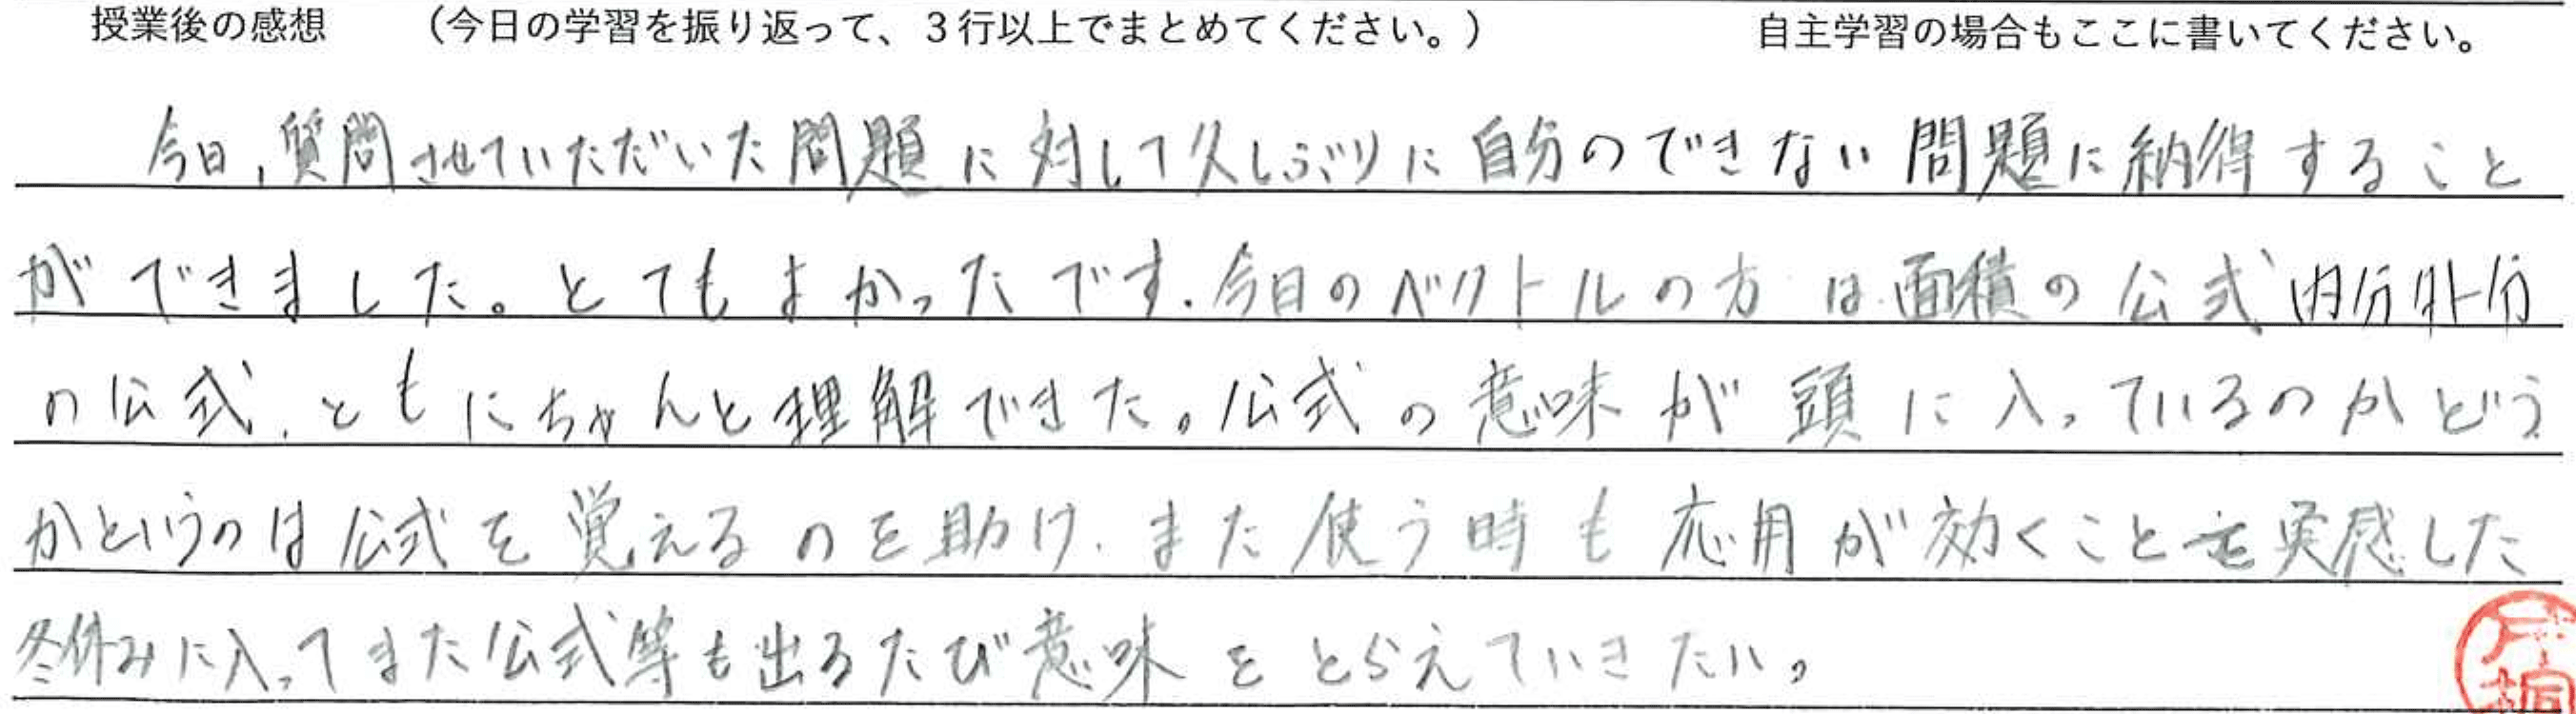 授業後の感想　（今日の学習を振り返って、３行以上でまとめてください。）　自主学習の場合もここに書いてください。
今日，質問させていただいた問題に対して久しぶりに自分のできない問題に納得すること
ができました。とてもよかったです．今日のベクトルの方は面積の公式、内分外分
の公式、ともにちゃんと理解できた。公式の意味が頭に入っているのかどう
かというのは公式を覚えるのを助け、また使う時も応用が効くことを実感した
冬休みに入ってまた公式等も出るたび意味をとらえていきたい。